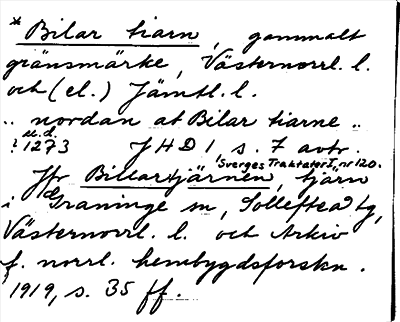 * Bilar tiarn, gammalt
gränsmärke, Västernorrl. l.
och (el.) Jämtl. l.
.. nordan at Bilar tiarne ..
u.d.
? 1273 JHD 1 s. 7 avtr.
Sverges Traktater I, nr 120.
Jfr Billartjärnen, tjärn
i Graninge sn, Sollefteå tg,
Västernorrl. l. och Arkiv
f. norrl. hembygdsforskn.
1919, s. 35 ff.